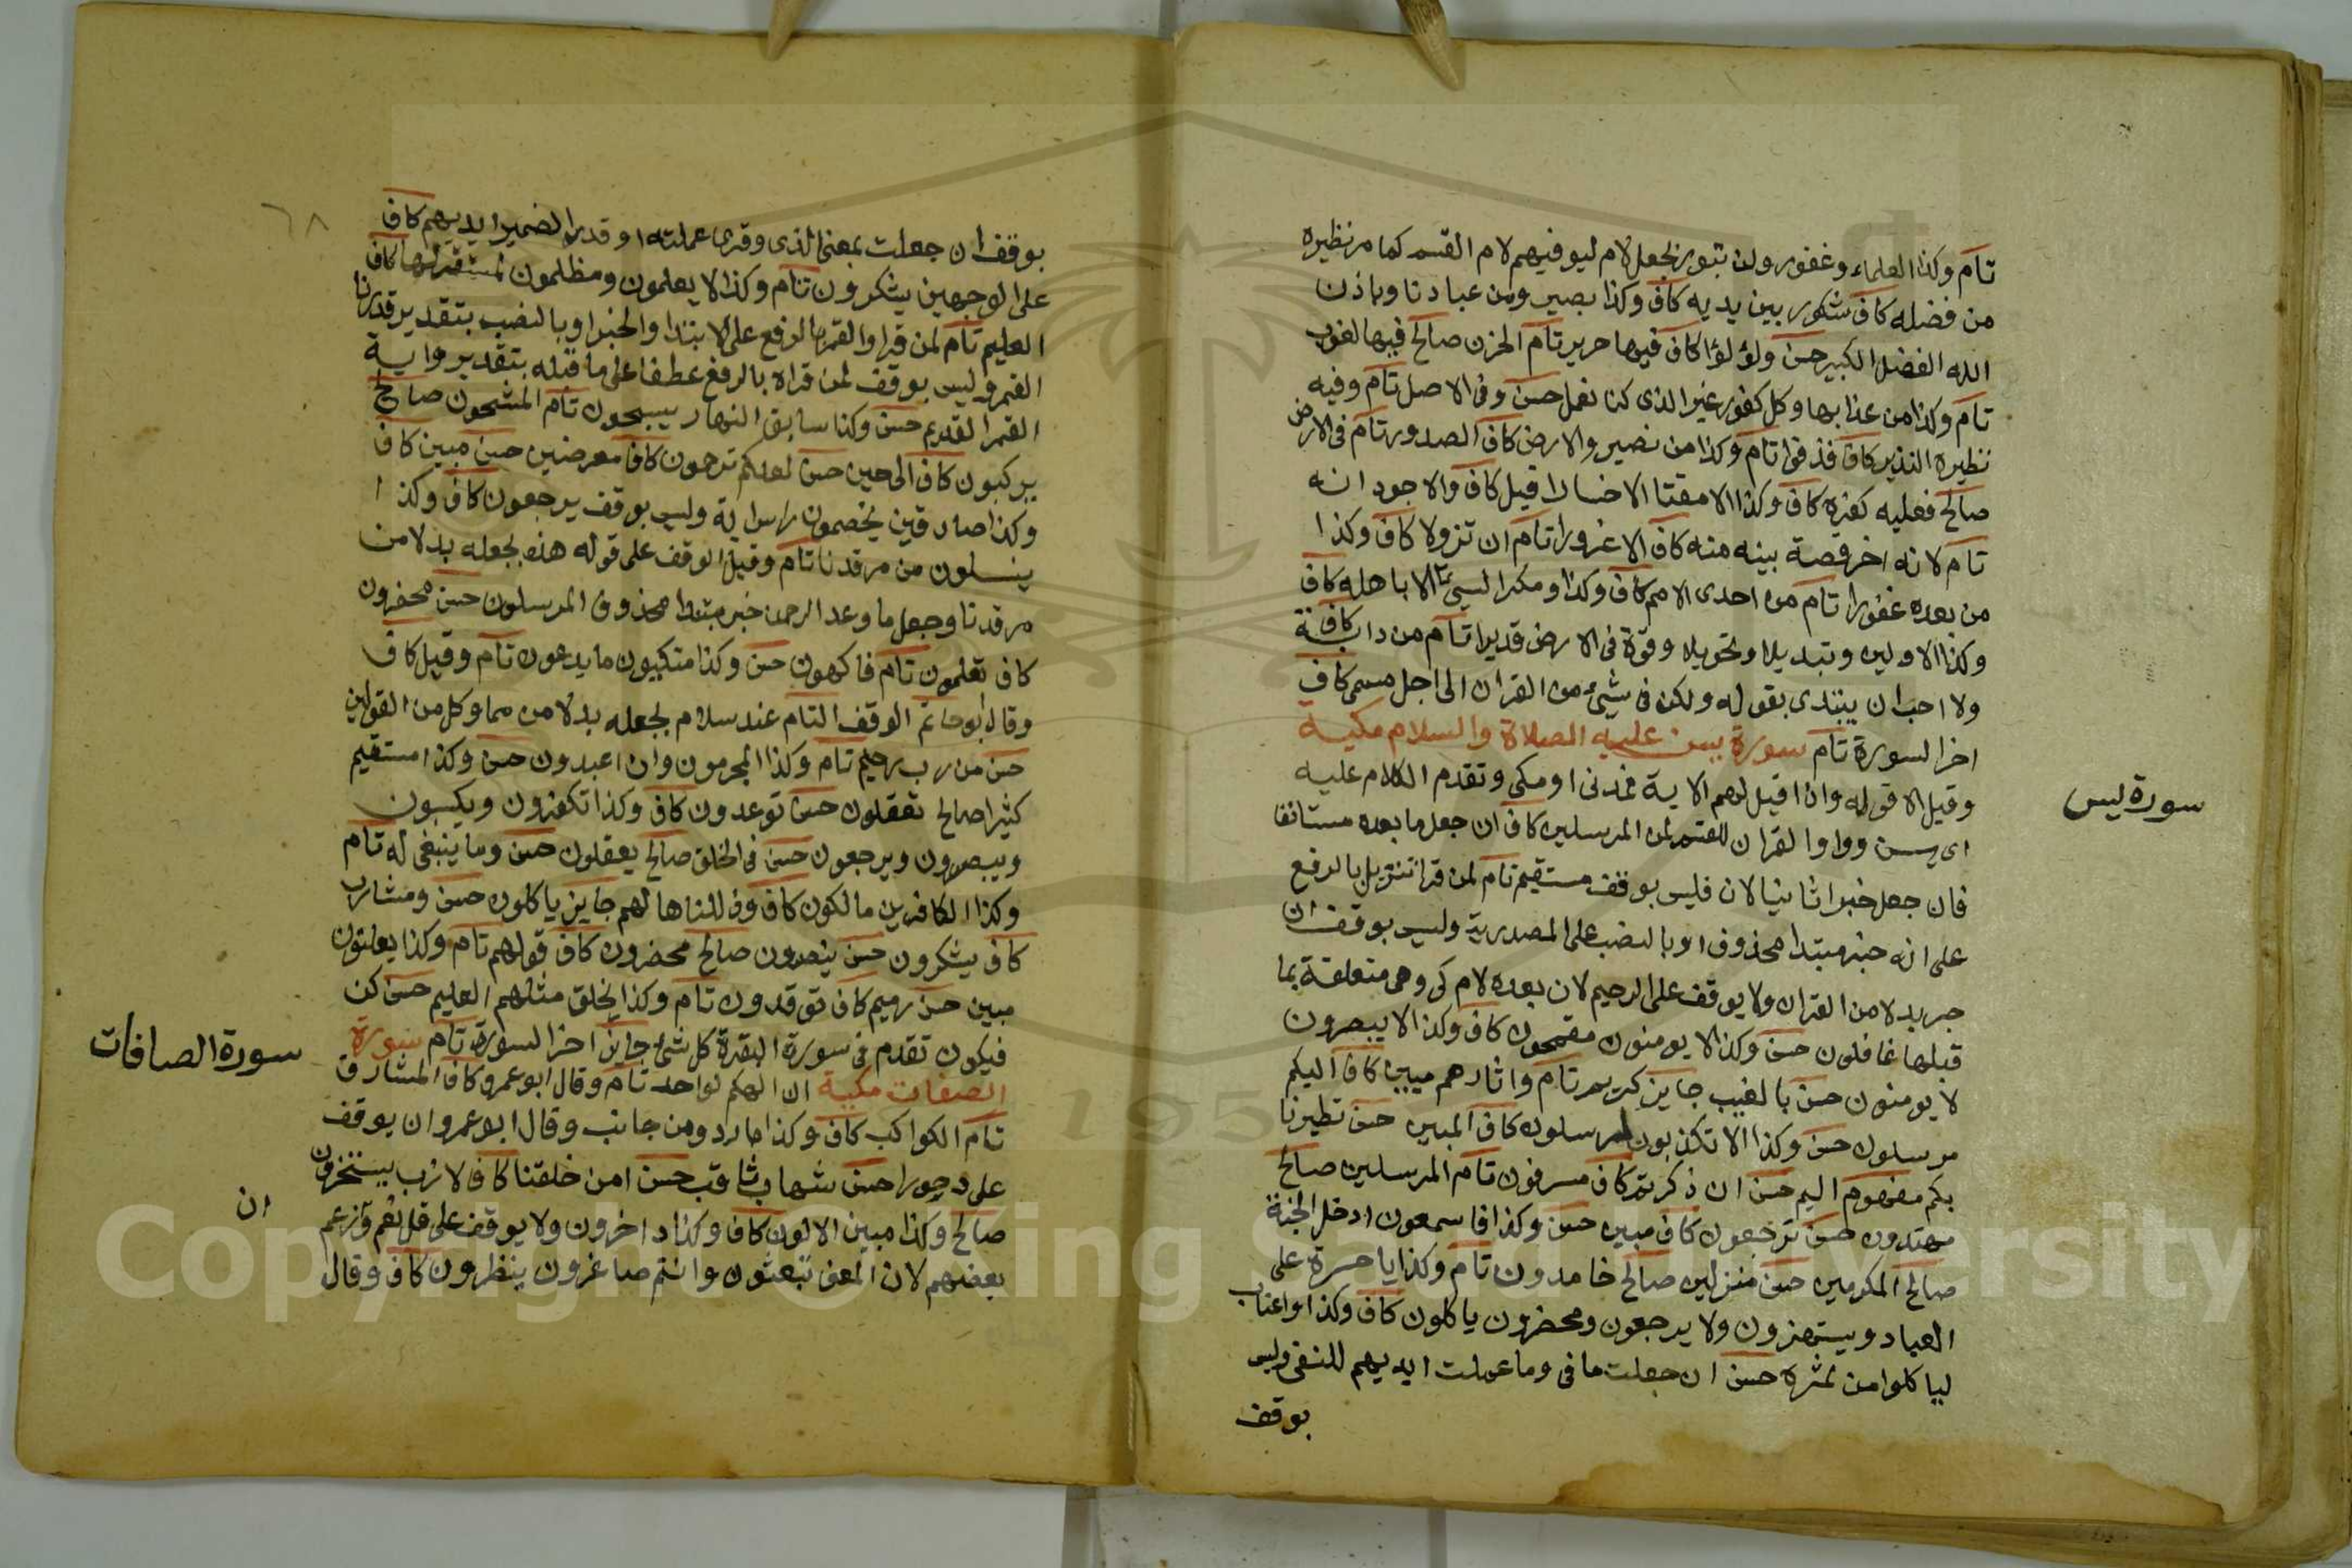 تام وكذا العلماء وغفور ولن تبور بجعل لام ليوفيهم لام القسم كما مر نظيره
من فضله كاف شكور بين يديه كاف وكذا بصير ومن عبادنا وباذن
الله الفضل الكبير حسن ولؤلؤا كاف فيها حرير تام الحزن صالح فيها لغوب
تام وكذا من عذابها وكل كفور غير الذى كنا نعمل حسن وفى الاصل تام وفيه
نظيره النذير كاف فذوقوا تام وكذا من نصير والارض كاف الصدور تام فى الارض
صالح فعليه كفره كاف وكذا الا مقتا الا خسارا قيل كاف والاجود انه
تام لانه اخر قصة بينه منه كاف الا غرورا تام ان تزولا كاف وكذا
من بعده غفورا تام من احدى الامم كاف وكذا ومكر السيئ الا باهله كاف
وكذا الاولين وتبديلا وتحويلا وقوة فى الارض قديرا تام من دابة كاف
ولا احب ان يبتدى بقوله ولكن فى شئ من القران الى اجل مسمى كاف
اخر السورة تام سورة يس عليه الصلاة والسلام مكية
وقيل الا قوله واذا قيل لهم الاية فمدنى او مكى وتقدم الكلام عليه
اى يس وواو القران للقسم لمن المرسلين كاف ان جعل ما بعده مستانفا
فان جعل خبرا ثانيا لان فليس بوقف مستقيم تام لمن قرا تنزيل بالرفع
على انه خبر مبتدا محذوف او بالنصب على المصدرية وليس بوقف ان
جر بدلا من القران ولا يوقف على الرحيم لان بعده لام كى وهى متعلقة بما
قبلها غافلون حسن وكذا لا يومنون مقمحون كاف وكذا لا يبصرون
لا يومنون حسن بالغيب جايز كريم تام واثارهم مبين كاف اليكم
مرسلون حسن وكذا الا تكذبون لمرسلون كاف المبين حسن تطيرنا
بكم مفهوم اليم حسن ان ذكرتم كاف مسرفون تام المرسلين صالح
مهتدون حسن ترجعون كاف مبين حسن وكذا فاسمعون ادخل الجنة
صالح المكرمين حسن منزلين صالح خامدون تام وكذا يا حسرة على
العباد ويستهزون ولا يرجعون ومحضرون ياكلون كاف وكذا واعناب
لياكلوا من ثمره حسن ان جعلت ما فى وما عملت ايديهم للنفى وليس
بوقف
سورة يس
٦٨
بوقف ان جعلت بمعنى الذى وقرى عملته او قدر الضمير ايديهم كاف
على الوجهين يشكرون تام وكذا لا يعلمون ومظلمون لمستقر لها كاف
العليم تام لمن قرا والقمر بالرفع على الابتدا والخبر او بالنصب بتقدير قدرنا
القمر وليس بوقف لمن قراه بالرفع عطفا على ما قبله بتقدير واية
القمر القديم حسن وكذا سابق النهار يسبحون تام المشحون صالح
يركبون كاف الى حين حسن لعلكم ترحمون كاف معرضين حسن مبين كاف
وكذا صادقين يخصمون راس اية وليس بوقف يرجعون كاف وكذا
ينسلون من مرقدنا تام وقيل الوقف على قوله هذا بجعله بدلا من
مرقدنا وجعل ما وعد الرحمن خبر مبتدا محذوف المرسلون حسن محضرون
كاف تعلمون تام فاكهون حسن وكذا متكيون ما يدعون تام وقيل كاف
وقال ابو حاتم الوقف التام عند سلام بجعله بدلا من مما وكل من القولين
حسن من رب رحيم تام وكذا المجرمون وان اعبدون حسن وكذا مستقيم
كثيرا صالح تعقلون حسن توعدون كاف وكذا تكفرون ويكسبون
ويبصرون ويرجعون حسن فى الخلق صالح يعقلون حسن وما ينبغى له تام
وكذا الكافرين مالكون كاف وذللناها لهم جايز ياكلون حسن ومشارب
كاف يشكرون حسن ينصرون صالح محضرون كاف قولهم تام وكذا يعلنون
مبين حسن رميم كاف توقدون تام وكذا يخلق مثلهم العليم حسن كن
فيكون تقدم فى سورة البقرة كل شئ جايز اخر السورة تام سورة
الصفات مكية ان الهكم لواحد تام وقال ابو عمرو كاف المشارق
تام الكواكب كاف وكذا مارد ومن جانب وقال ابو عمرو ان يوقف
على دحورا حسن شهاب ثاقب حسن امن خلقنا كاف لازب يستسخرون
صالح وكذا مبين الاولون كاف وكذا داخرون ولا يوقف على قل نعم وزعم
بعضهم لان المعنى تبعثون وانتم صاغرون ينظرون كاف وقال
سورة الصافات
ان
Copyright © King Saud University
195